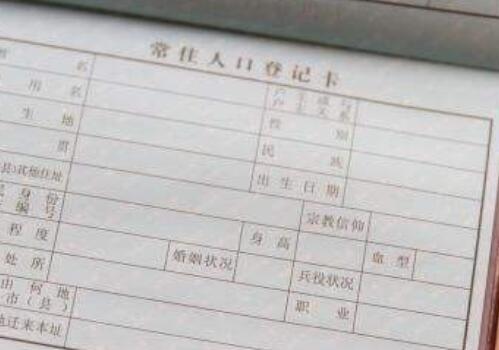 常住人口登记卡
名 户主或与户主关系
用名 性别
生地 民族
贯 出生日期
县)其他住址 宗教信仰
身份编号 身高 血型
程度 婚姻状况 兵役状况
处所 职业
由何地
市(县)
迁来本址